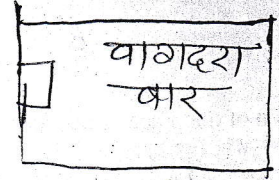 वागदरा
बार